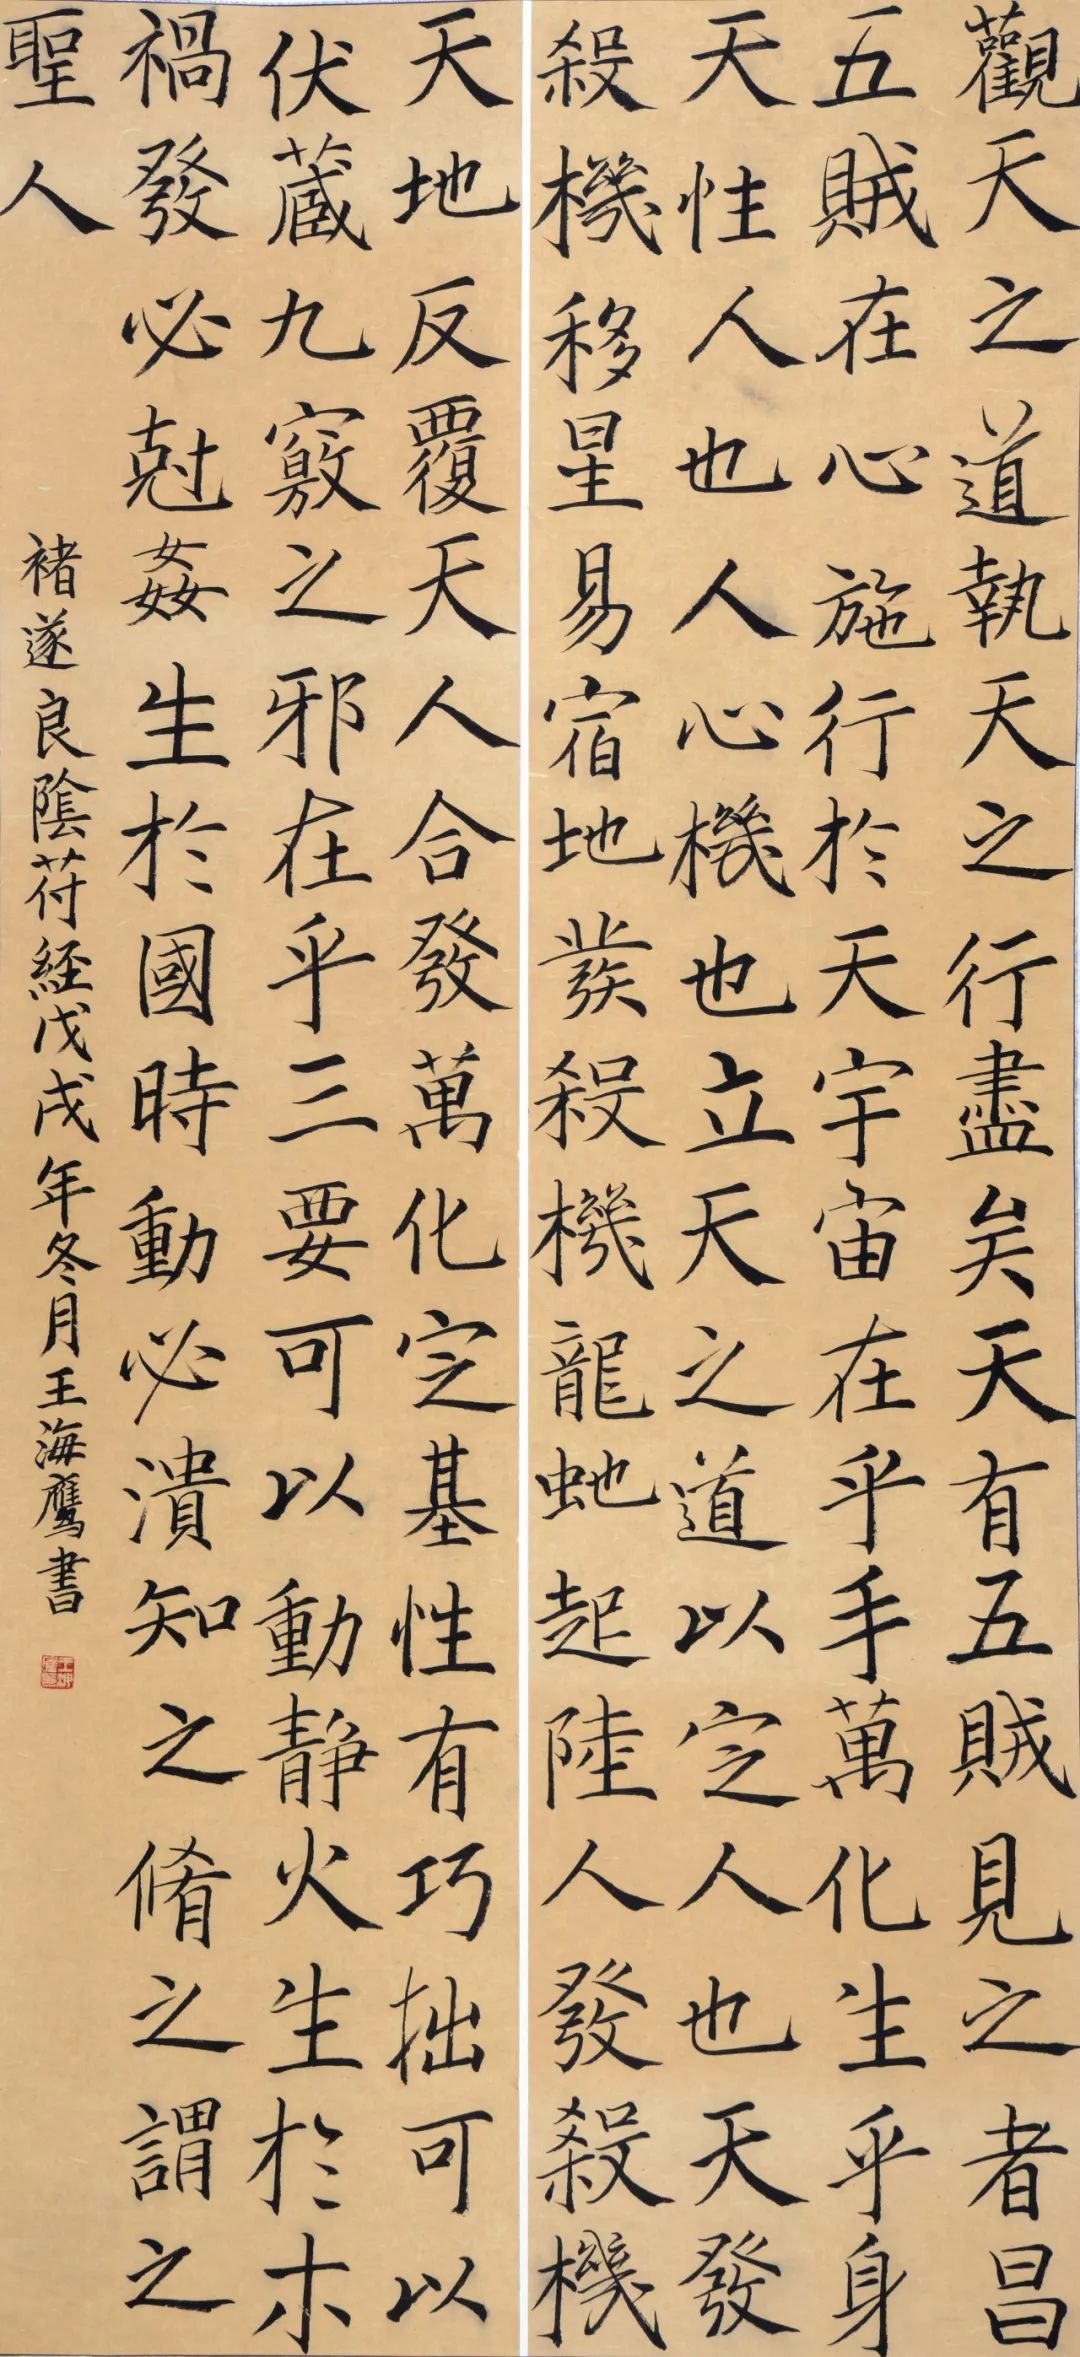 觀天之道執天之行盡矣天有五賊見之者昌
五賊在心施行於天宇宙在乎手萬化生乎身
天性人也人心機也立天之道以定人也天發
殺機移星易宿地發殺機龍虵起陸人發殺機
天地反覆天人合發萬化定基性有巧拙可以
伏蔵九竅之邪在乎三要可以動静火生於木
禍發必尅姦生於國時動必潰知之脩之謂之
聖人
褚遂良陰符経戊戌年冬月王海鹰書